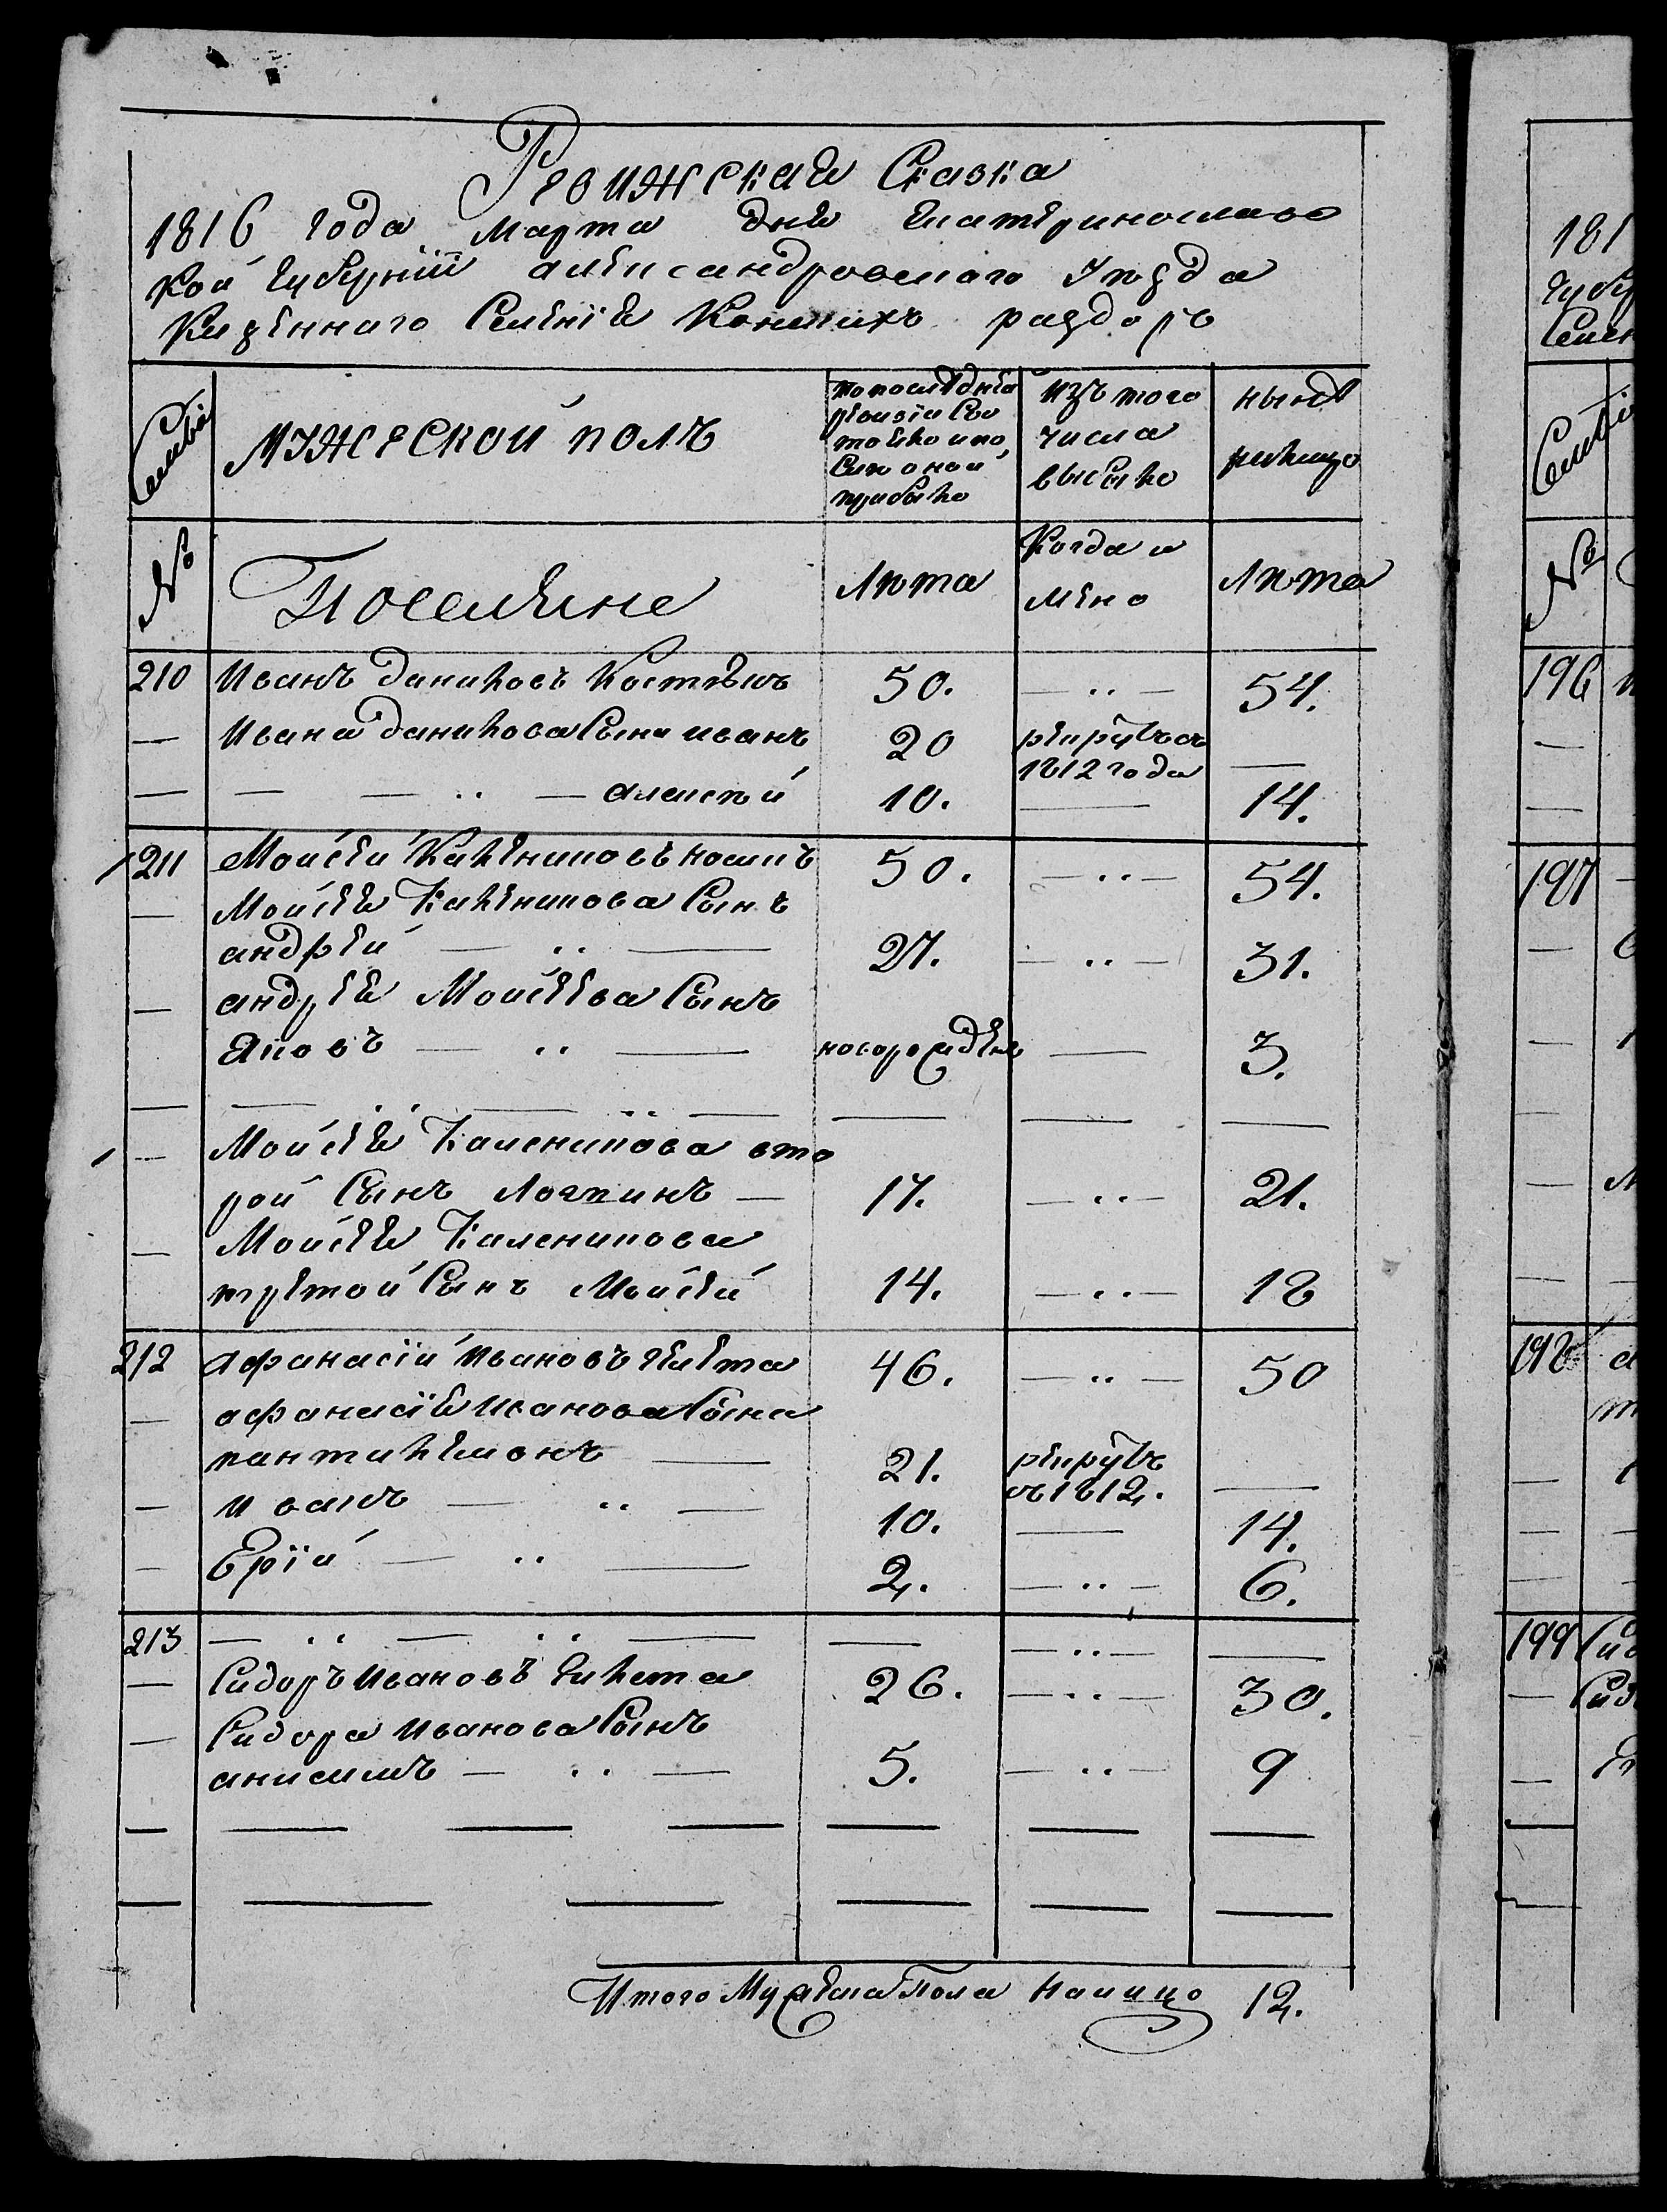 Ревижская Сказка
1816 года Марта дня Екатеринославс
кой губернїи александровскаго Уѣзда
Казеннаго Селенїя Конскихъ раздоръ
Семьи
Мужеской полъ
по последней
ревизіи Со
тояло и по
Слѣ оной
прибыло
изъ того
числа
выбыло
нынѣ
налицо
№
Поселяне
Лѣта
Когда и
Лѣта
210 Иванъ даниловъ 50. — ·· — 54.
— Ивана данилова Сына иванъ 20 рекрутъ въ
1812 года —
— — — ·· — алексѣй 10. — 14.
211 Моисей Калениковъ 50. — ·· — 54.
— Моисея Каленикова Сынъ
андрей — ·· — 27. — ·· — 31.
— андрея Моисеева Сынъ
Яковъ — ·· — новорожденъ — 3.
— — ·· — ·· — — — —
— Моисея Каленикова вто
рой Сынъ Логинъ — 17. — ·· — 21.
— Моисея Каленикова
третой Сынъ Моисей 14. — ·· — 18
212 афанасїй Ивановъ Гелета 46. — ·· — 50
— афанасїя Иванова Сына
пантилемонъ — 21. рекрутъ
въ 1812. —
— иванъ — ·· — 10. — 14.
— Ерїй — ·· — 2. — ·· — 6.
213 — ·· — ·· — — — ·· — —
— Сидоръ Ивановъ Гилета 26. — ·· — 30.
— Сидора Иванова Сынъ
анисимъ — ·· — 5. — ·· — 9
— — — — — — —
— — — — — —
Итого Мужеска Пола Налицо 12.
181
губер
Селен
Семьи
№
196
197
198
199 Сид
Сид